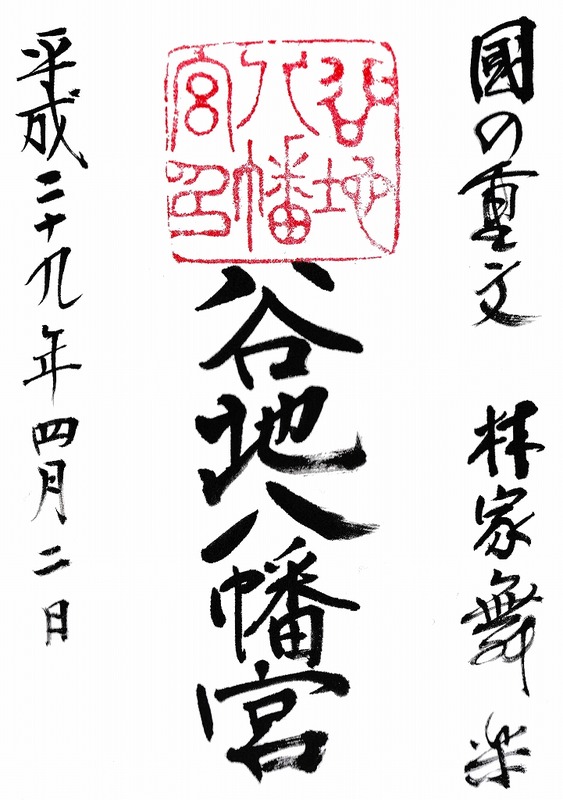 國の重文 林家舞楽
谷地八幡宮
谷地
八幡
宮印
平成二十九年四月二日